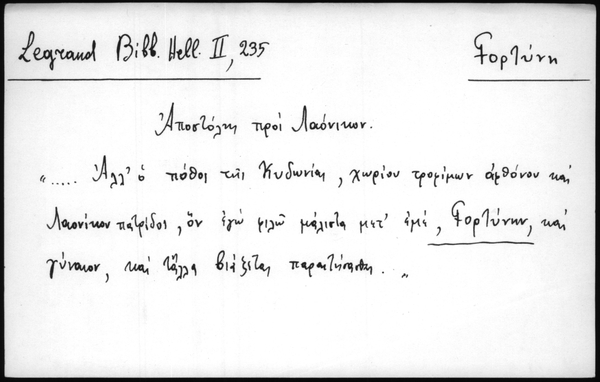 Legrand Bibl. Hell. II, 235 Γορτύνη
Ἀποστόλης πρὸς Λαόνικον.
"..... Ἀλλ' ὁ πόθος τῆς Κυδωνίας, χωρίου τροφίμων ἀφθόνου καὶ
Λαονίκου πατρίδος, ὃν ἐγὼ φιλῶ μάλιστα μετ' ἐμέ, Γορτύνην, καὶ
γύναιον, καὶ τἄλλα βιάζεται παραιτήσασθαι. "